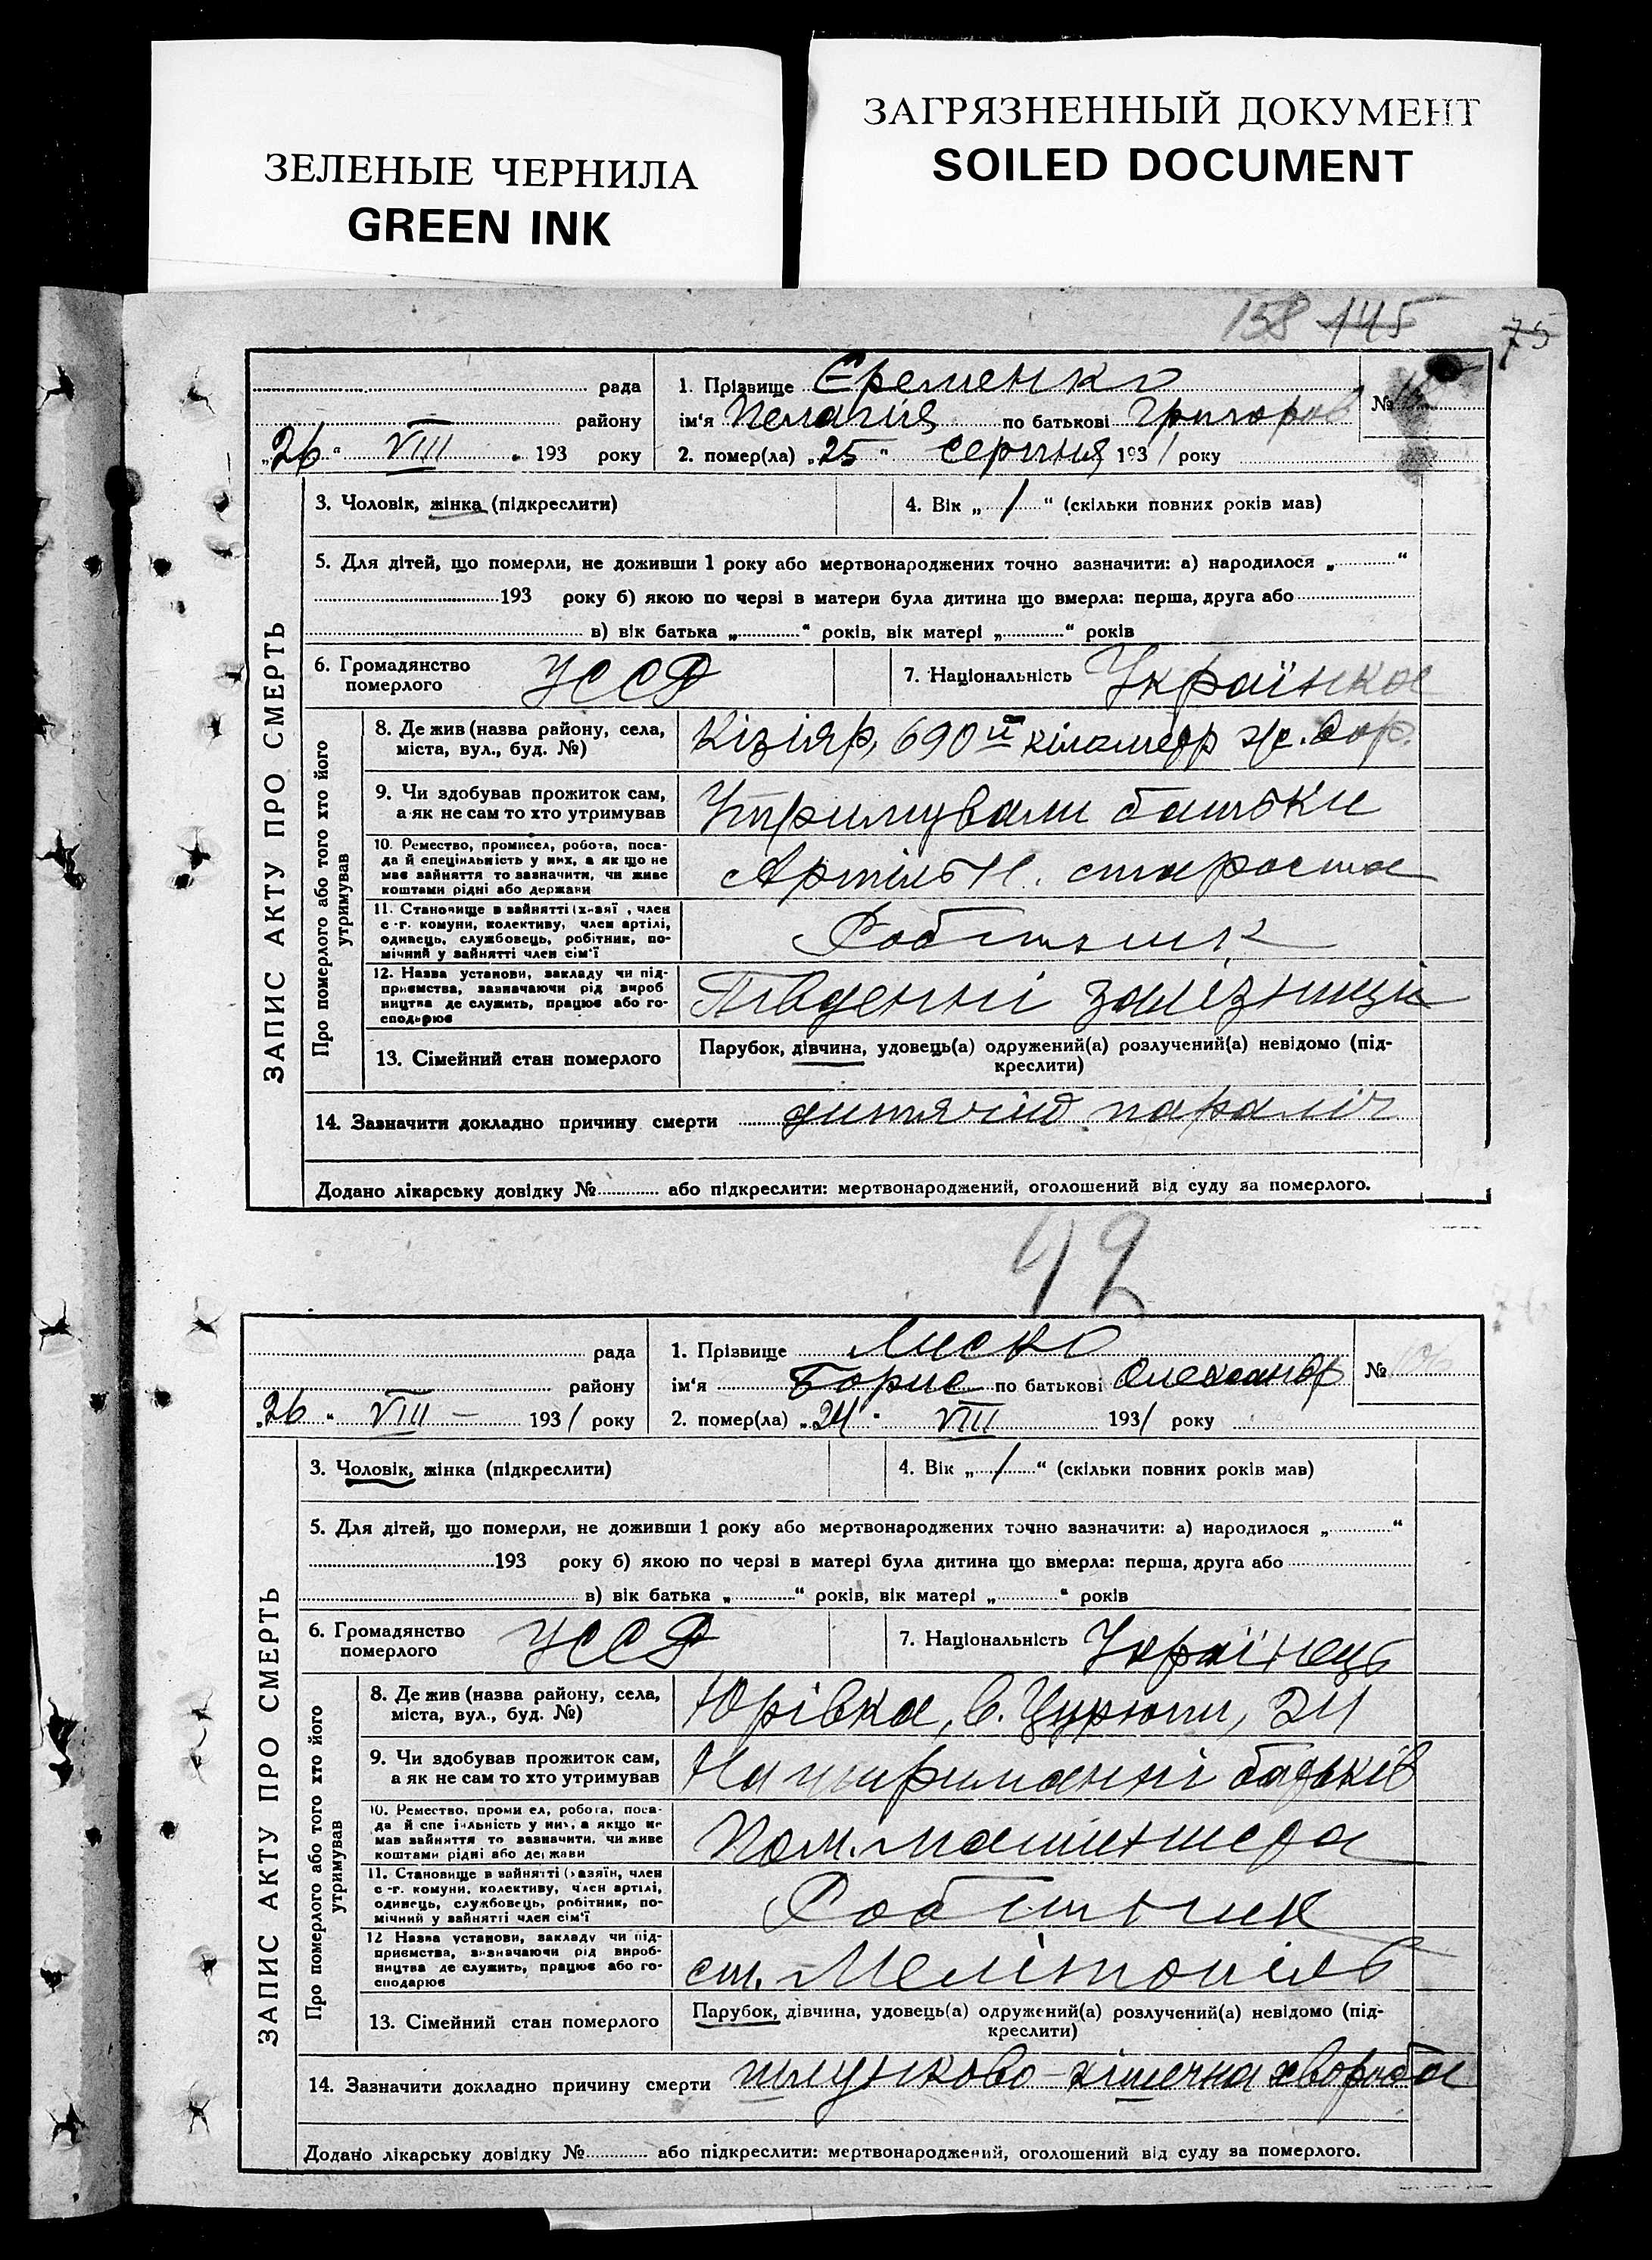 ЗЕЛЕНЫЕ ЧЕРНИЛА
GREEN INK
ЗАГРЯЗНЕННЫЙ ДОКУМЕНТ
SOILED DOCUMENT
158 145 75
рада
району
„26“ VIII 193 року
1. Прізвище Єременко
ім'я Пелагия по батькові Григоров
№
2. помер(ла) „25“ серпня 1931 року
ЗАПИС АКТУ ПРО СМЕРТЬ
3. Чоловік, жінка (підкреслити)
4. Вік „1“ (скільки повних років мав)
5. Для дітей, що померли, не доживши 1 року або мертвонароджених точно зазначити: а) народилося „ “
193 року б) якою по черзі в матери була дитина що вмерла: перша, друга або
в) вік батька „ “ років, вік матері „ “ років
6. Громадянство
померлого
УССР
7. Національність Українка
Про померлого або того хто його
утримував
8. Де жив (назва району, села,
міста, вул., буд. №)
Кізіяр, 690й кілометр
9. Чи здобував прожиток сам,
а як не сам то хто утримував
Утримували батьки
10. Ремество, промисел, робота, поса-
да й спеціяльність у них, а як що не
має зайняття то зазначити, чи живе
коштами рідні або держави
Артільн. староста
11. Становище в зайнятті (хазяї , член
с -г. комуни, колективу, член артілі,
одинець, службовець, робітник, по-
мічний у зайнятті член сім'ї
Робітник
12. Назва установи, закладу чи під-
приємства, зазначаючи рід вироб
ництва де служить, працює або го-
сподарює
Південні залізниці
13. Сімейний стан померлого
Парубок, дівчина, удовець(а) одружений(а) розлучений(а) невідомо (під-
креслити)
14. Зазначити докладно причину смерти дитячий параліч
Додано лікарську довідку № або підкреслити: мертвонароджений, оголошений від суду за померлого.
42
рада
району
„26“ VIII 1931 року
1. Прізвище Лиско
ім'я Борис по батькові Олександр
№ 106
2. помер(ла) „24“ VIII 1931 року
ЗАПИС АКТУ ПРО СМЕРТЬ
3. Чоловік, жінка (підкреслити)
4. Вік „1“ (скільки повних років мав)
5. Для дітей, що померли, не доживши 1 року або мертвонароджених точно зазначити: а) народилося „ “
193 року б) якою по черзі в матері була дитина що вмерла: перша, друга або
в) вік батька „ “ років, вік матері „ “ років
6. Громадянство
померлого
УССР
7. Національність Українець
Про померлого або того хто його
утримував
8. Де жив (назва району, села,
міста, вул., буд. №)
Юрівка, в. Цурюпи, 24
9. Чи здобував прожиток сам,
а як не сам то хто утримував
На утриманні батьків
10. Ремество, проми ел, робота, поса-
да й спе іяльність у них, а якщо не
мав зайняття то зазначити, чи живе
коштами рідні або держави
Пом. машиніста
11. Становище в зайнятті (хазяїн, член
с -г. комуни, колективу, член артілі,
одинець, службовець, робітник, по-
мічний у зайнятті член сім'ї
Робітник
12 Назва установи, закладу чи під-
приємства, зазначаючи рід вироб-
ництва де служить, працює або го-
сподарює
ст. Мелітопіль
13. Сімейний стан померлого
Парубок, дівчина, удовець(а) одружений(а) розлучений(а) невідомо (під-
креслити)
14. Зазначити докладно причину смерти шлунково-кішечна хвороба
Додано лікарську довідку № або підкреслити: мертвонароджений, оголошений від суду за померлого.